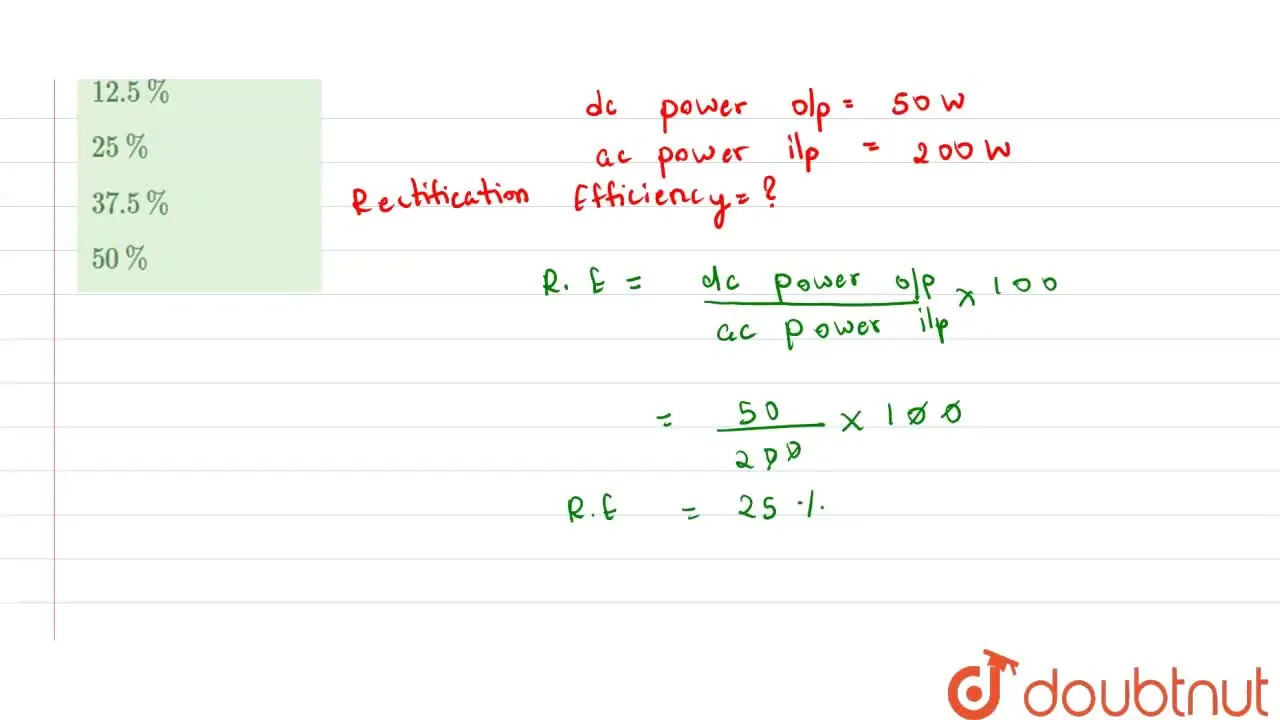 12.5 %
25 %
37.5 %
50 %
dc power o/p = 50 W
ac power i/p = 200 W
Rectification Efficiency = ?
R. E = dc power o/p / ac power i/p × 100
= 50 / 200 × 100
R.E = 25 %
doubtnut